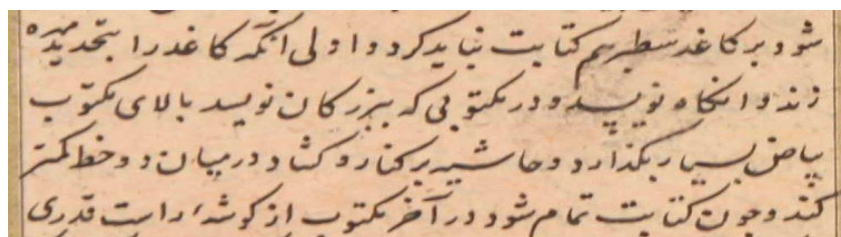 شود بر کاغذ سطبر هم کتابت نباید کرد و اولی آنکه کاغذ را بتجدید مهره
زند و انگاه نویسد و در مکتوبی که ببزرکان نویسد بالای مکتوب
بیاض بسیار بگذارد و حاشیه بر کنار و کشاد در میان دو خط کمتر
کند و چون کتابت تمام شود در آخر مکتوب از کوشهٔ راست قدری